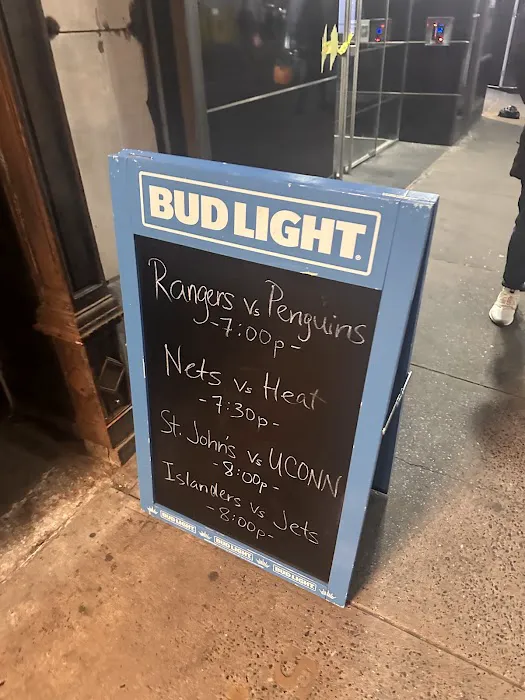 BUD LIGHT.
Rangers vs Penguins
-7:00p-
Nets vs Heat
-7:30p-
St. John's vs UCONN
-8:00p-
Islanders vs Jets
-8:00p-
BUD LIGHT BUD LIGHT BUD LIGHT